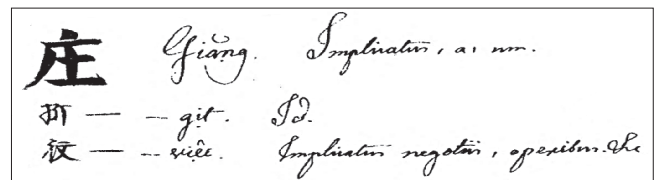 庄 Giằng. Implicatus, a, um.
— -- gịt. Id.
役 — -- việc. Implicatus negotiis, operibus. &c